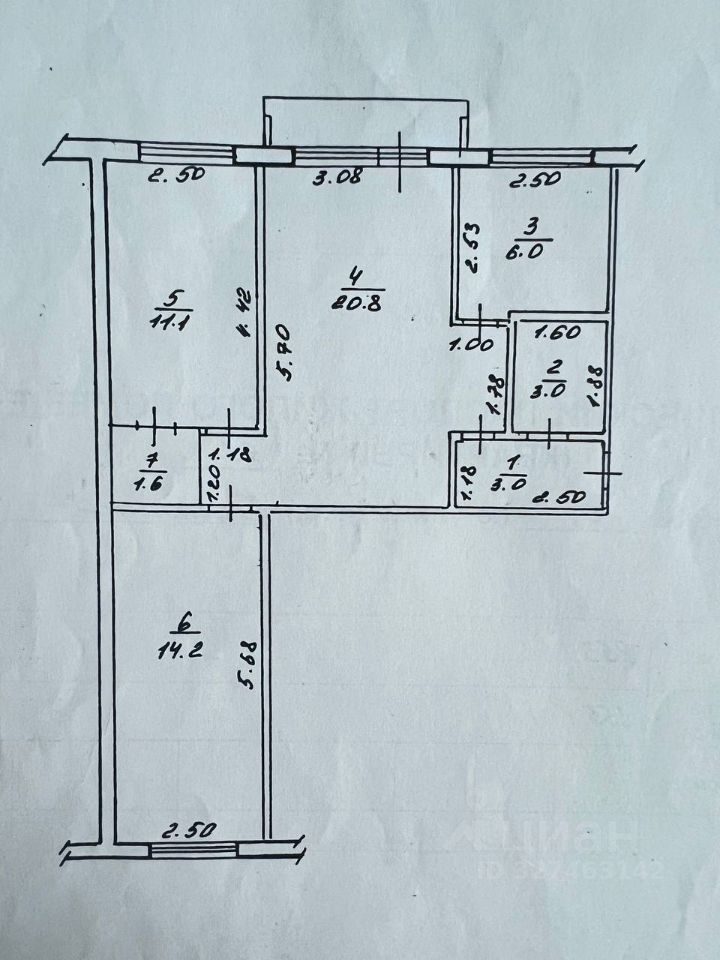 2.50
3.08
2.50
5
11.1
4.42
4
20.8
5.70
2.53
3
6.0
1.00
1.60
1.78
2
3.0
1.88
7
1.6
1.18
1.20
1.18
1
3.0
2.50
6
14.2
5.68
2.50
циан
ID 327463142